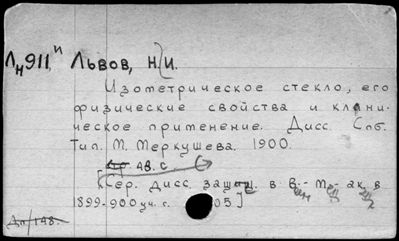 Лн911 Львов, Н.И.
Изометрическое стекло, его
физические свойства и клини-
ческое применение. Дисс. Спб.
Тип. М. Меркушева. 1900.
48 с
[Сер. дисс. защищ. в в.-м. ак. в
1899-900 уч. г.
Дп/148.